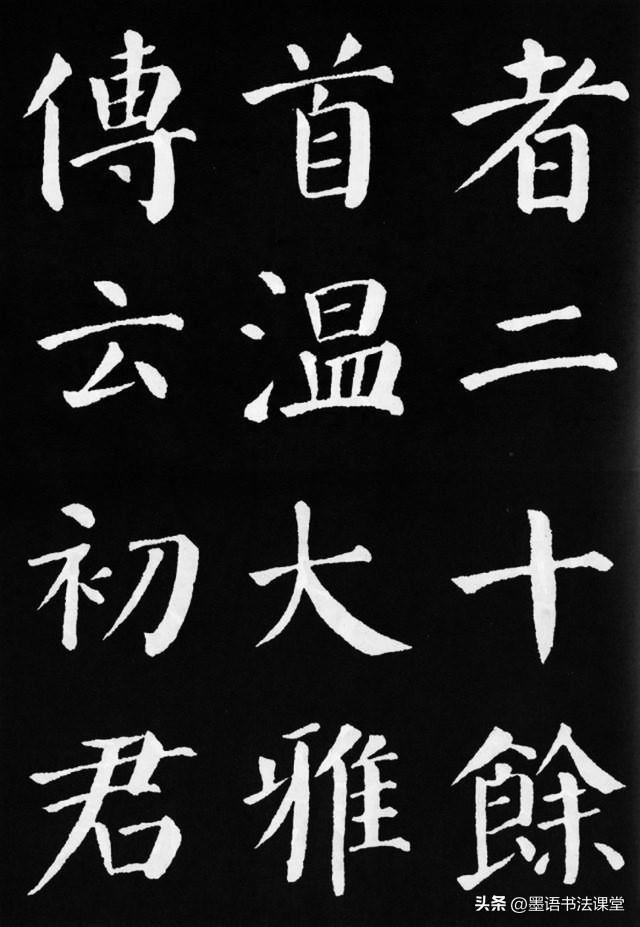 者二十餘
首温大雅
傳云初君
头条 @墨语书法课堂